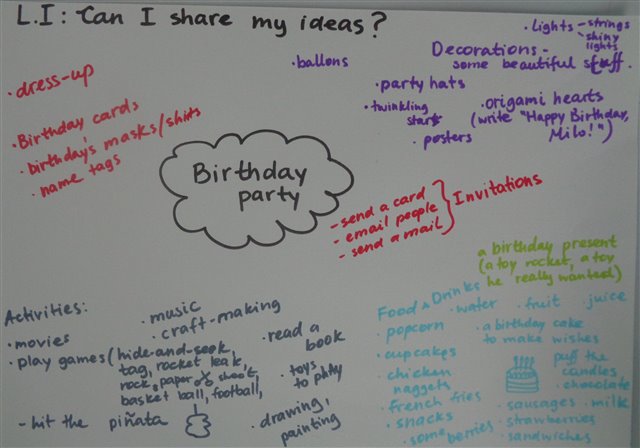 L.I: Can I share my ideas?
• Lights - strings
- shiny lights
Decorations -
some beautiful stuff.
• ballons
• party hats
• twinkling
stars
• origami hearts
(write "Happy Birthday,
Milo!")
• posters
• dress-up
• Birthday cards
• birthday's masks/shirts
• name tags
Birthday
party
- send a card
- email people
- send a mail
Invitations
a birthday present
(a toy rocket, a toy
he really wanted)
Activities:
• music
• craft-making
• movies
• read a
book
• play games (hide-and-seek,
tag, rocket leak,
rock, paper & shoot,
basket ball, football,
• toys
to play
- hit the piñata
• drawing,
painting
Food & Drinks
• water
• fruit
• juice
• popcorn
• a birthday cake
to make wishes
• cupcakes
puff the
candles
• chicken
nuggets
• chocolate
• french fries
• sausages
• milk
• snacks
• strawberries
• some berries
• sandwiches